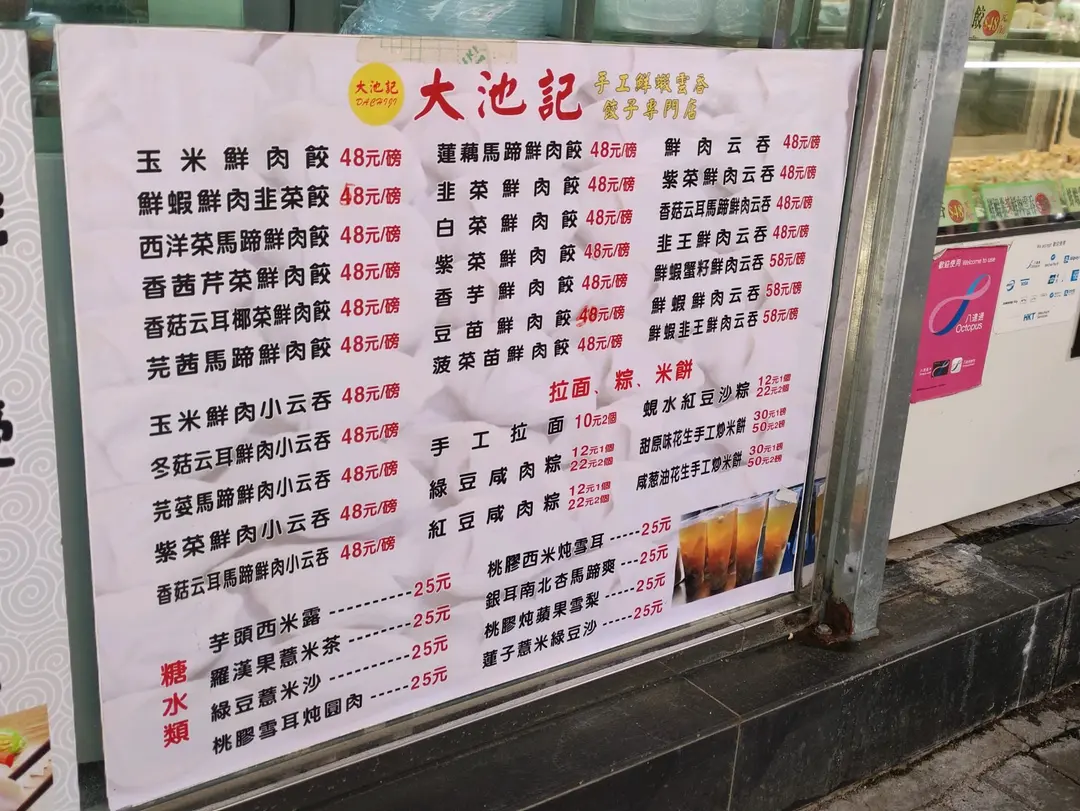 大池記
DACHIJI
大池記
手工鮮蝦雲吞
餃子專門店
玉米鮮肉餃 48元/磅
鮮蝦鮮肉韭菜餃 48元/磅
西洋菜馬蹄鮮肉餃 48元/磅
香茜芹菜鮮肉餃 48元/磅
香菇云耳椰菜鮮肉餃 48元/磅
芫茜馬蹄鮮肉餃 48元/磅
玉米鮮肉小云吞 48元/磅
冬菇云耳鮮肉小云吞 48元/磅
芫荽馬蹄鮮肉小云吞 48元/磅
紫菜鮮肉小云吞 48元/磅
香菇云耳馬蹄鮮肉小云吞 48元/磅
蓮藕馬蹄鮮肉餃 48元/磅
韭菜鮮肉餃 48元/磅
白菜鮮肉餃 48元/磅
紫菜鮮肉餃 48元/磅
香芋鮮肉餃 48元/磅
豆苗鮮肉餃 48元/磅
菠菜苗鮮肉餃 48元/磅
鮮肉云吞 48元/磅
紫菜鮮肉云吞 48元/磅
香菇云耳馬蹄鮮肉云吞 48元/磅
韭王鮮肉云吞 48元/磅
鮮蝦蟹籽鮮肉云吞 58元/磅
鮮蝦鮮肉云吞 58元/磅
鮮蝦韭王鮮肉云吞 58元/磅
拉面、粽、米餅
手工拉面 10元2個
綠豆咸肉粽 12元1個 22元2個
紅豆咸肉粽 12元1個 22元2個
蜆水紅豆沙粽 12元1個 22元2個
甜原味花生手工炒米餅 30元1磅 50元2磅
咸葱油花生手工炒米餅 30元1磅 50元2磅
糖水類
芋頭西米露 ---------- 25元
羅漢果薏米茶 -------- 25元
綠豆薏米沙 ---------- 25元
桃膠雪耳炖圓肉 ----- 25元
桃膠西米炖雪耳 ----- 25元
銀耳南北杏馬蹄爽 --- 25元
桃膠炖蘋果雪梨 ---- 25元
蓮子薏米綠豆沙 ---- 25元
餃 $48
歡迎使用 Welcome to use
八達通
Octopus
HKT